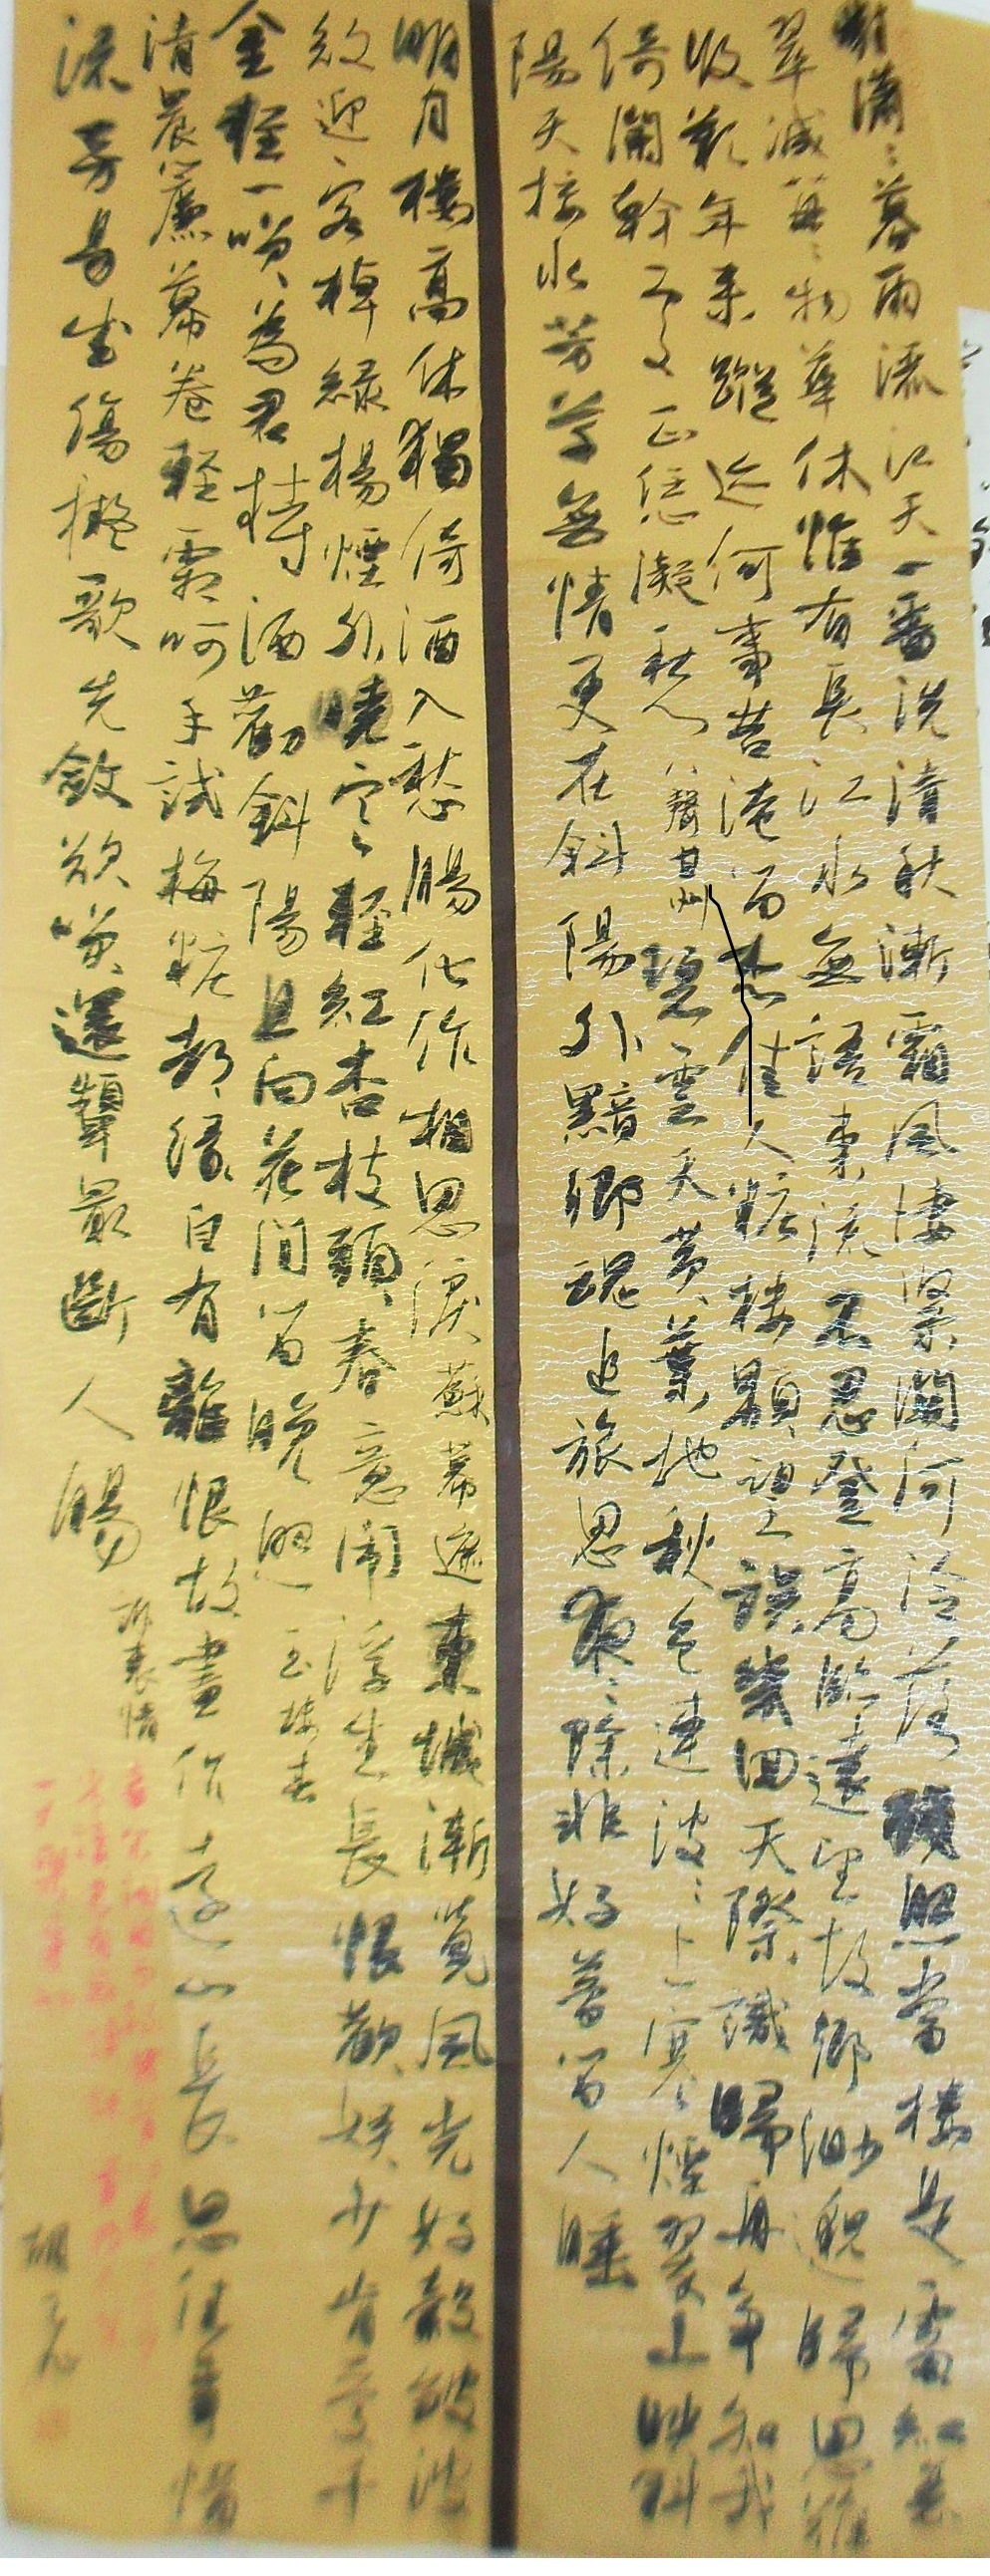 對瀟〻暮雨灑江天一番洗清秋漸霜風悽緊關河冷落殘照當樓是處紅衰
翠減苒〻物華休惟有長江水無語東流不忍登高臨遠望故鄉渺邈歸思難
收歎年來蹤迹何事苦淹留想佳人糚樓顒望誤幾回天際識歸舟爭知我
倚闌幹處正恁凝愁八聲甘州碧雲天黃葉地秋色連波〻上寒煙翠山映斜
陽天接水芳草無情更在斜陽外黯鄉魂追旅思夜〻除非好夢留人睡
明月樓高休獨倚酒入愁腸化作相思淚蘇幕遮東城漸覺風光好縠皺波
紋迎客棹綠楊煙外曉寒輕紅杏枝頭春意鬧浮生長恨歡娛少肯愛千
金輕一笑為君持酒勸斜陽且向花間留晚照玉樓春
清晨簾幕卷輕霜呵手試梅糚都緣自有離恨故畫作遠山長思往事惜
流芳易成傷擬歌先斂欲笑還顰最斷人腸
訴衷情